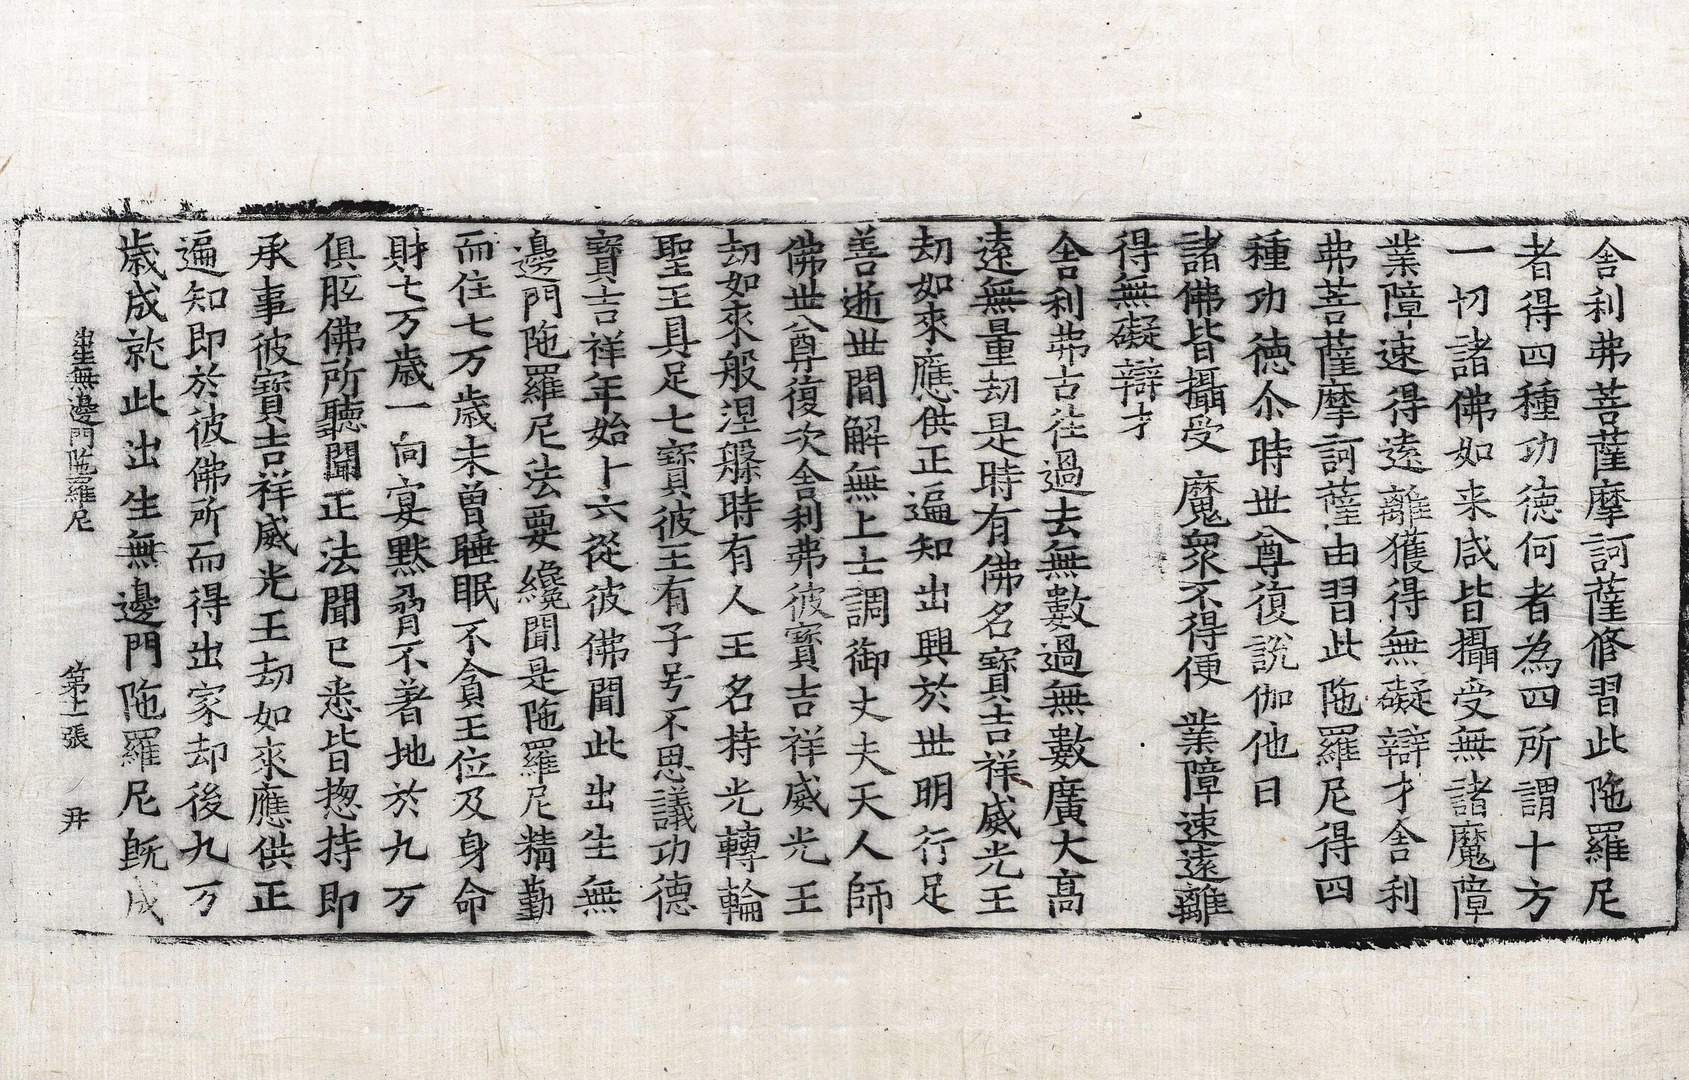 舎利弗菩薩摩訶薩修習此陁羅尼
者得四種功德何者為四所謂十方
一切諸佛如来咸皆攝受無諸魔障
業障速得逺離獲得無礙辯才舎利
弗菩薩摩訶薩由習此陁羅尼得四
種功德尒時世尊復說伽他曰
諸佛皆攝受 魔衆不得便 業障速逺離
得無礙辯才
舎利弗古往過去無數過無數廣大髙
逺無量劫是時有佛名寳吉祥威光王
劫如來應供正遍知出興於世明行足
善逝世間解無上士調御丈夫天人師
佛世尊復次舎利弗彼寳吉祥威光王
劫如來般涅槃時有人王名持光轉輪
聖王具足七寳彼王有子号不思議功德
寳吉祥年始十六從彼佛聞此出生無
邊門陁羅尼法要纔聞是陁羅尼精勤
而住七万歳未曽睡眠不貪王位及身命
財七万歳一向宴黙脅不著地於九万
俱胝佛所聽聞正法聞已悉皆揔持即
承事彼寳吉祥威光王劫如來應供正
遍知即於彼佛所而得出家却後九万
歳成就此出生無邊門陁羅尼旣成
出生無邊門陁羅尼 第二張